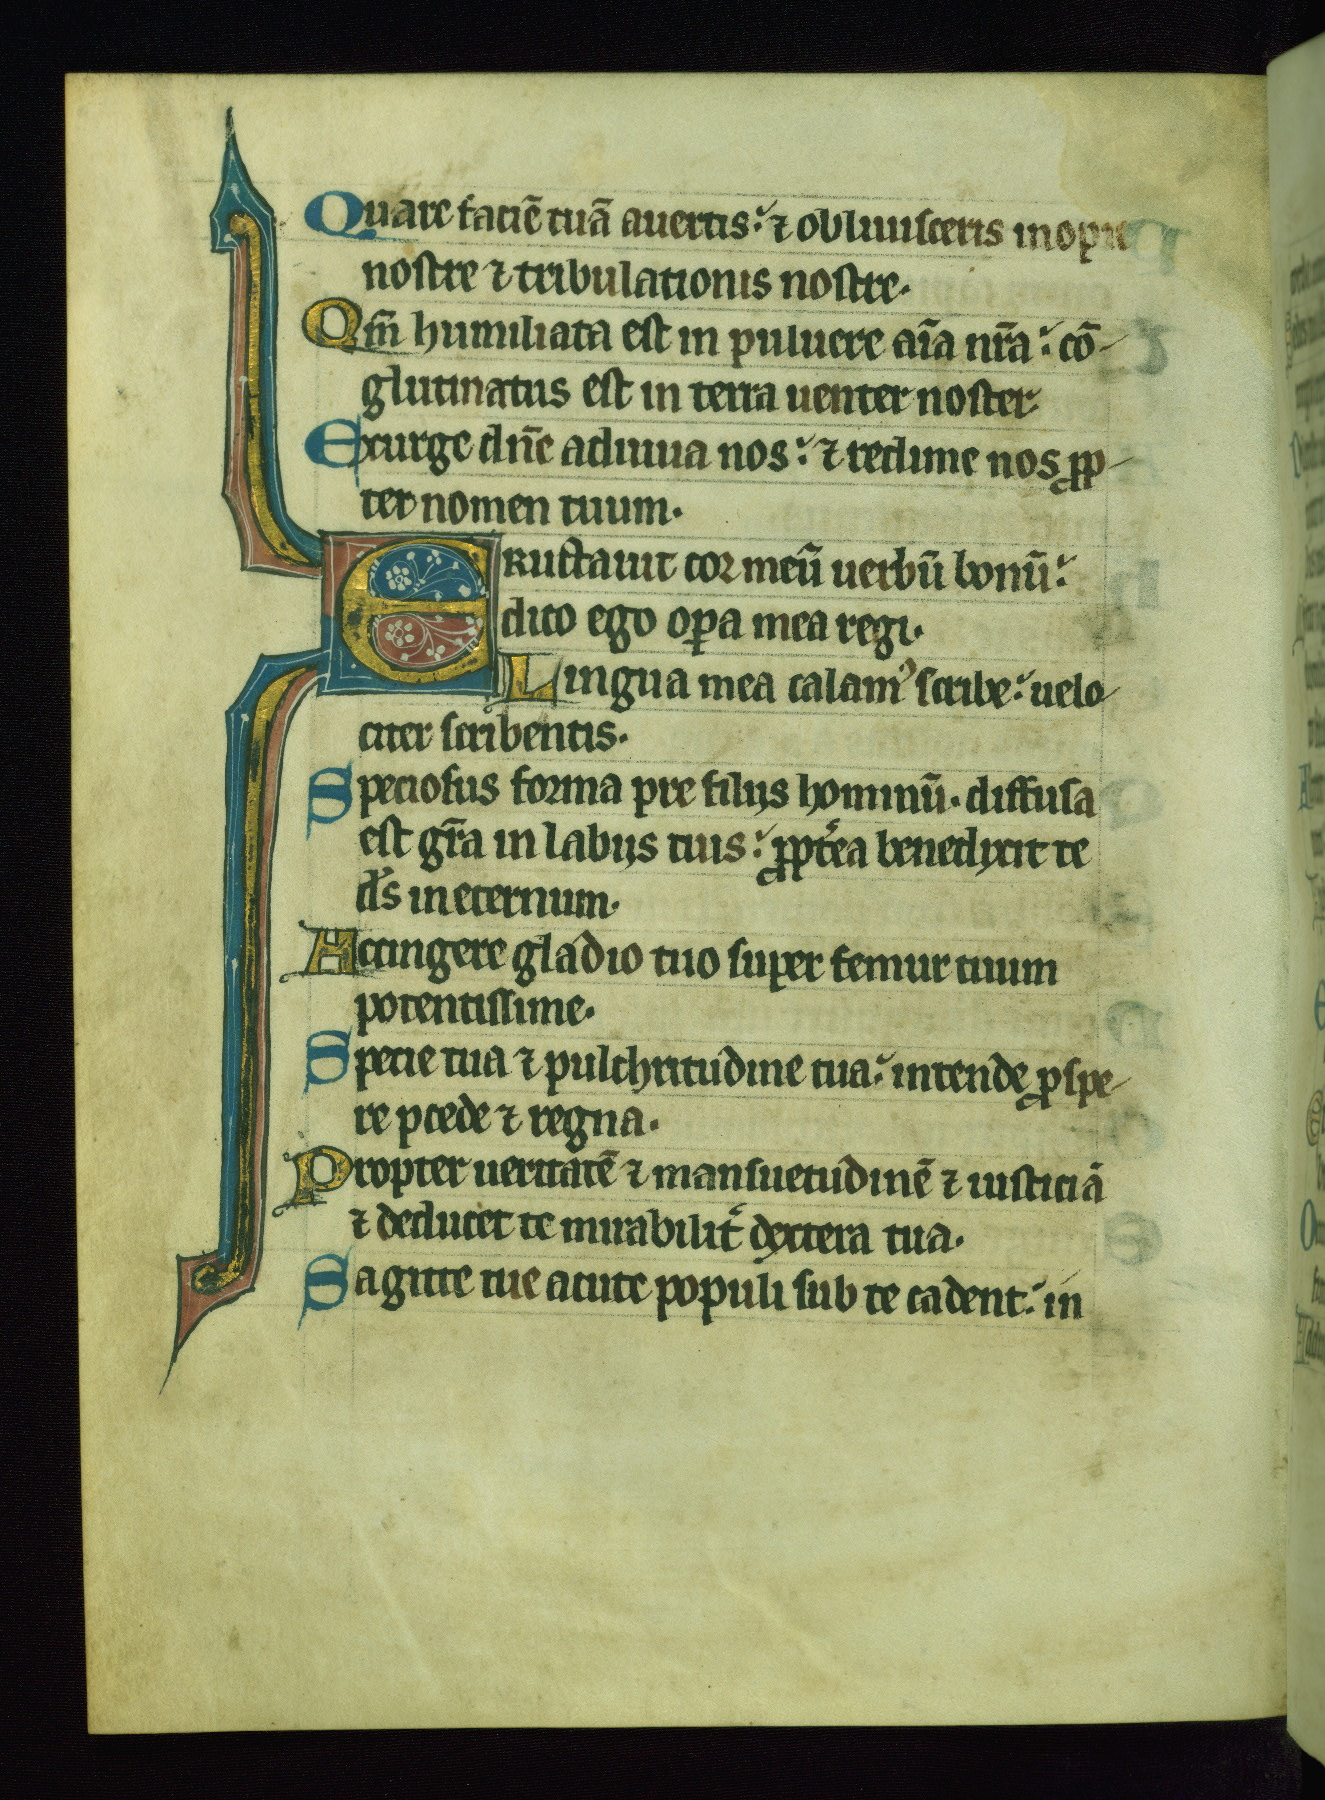 Quare faciē tuā auertis: ⁊ obliuisceris inopie
nostre ⁊ tribulationis nostre.
Qm̄ humiliata est in puluere aīa nr̄a: cō-
glutinatus est in terra uenter noster
Exurge dn̄e adiuua nos: ⁊ redime nos ꝓp-
ter nomen tuum.
Eructauit cor meū uerbū bonū:
dico ego oꝑa mea regi.
Lingua mea calamꝰ scribe: uelo-
citer scribentis.
Speciosus forma pre filijs hominū. diffusa
est gr̄a in labijs tuis: ꝓpt̾ea benedixit te
ds̄ in eternum.
Accingere gladio tuo super femur tuum
potentissime.
Specie tua ⁊ pulchritudine tua: intende ꝓspe-
re pcede ⁊ regna.
Propter ueritatē ⁊ mansuetudinē ⁊ iusticiā
⁊ deducet te mirabilit̾ dextera tua.
Sagitte tue acute populi sub te cadent: in